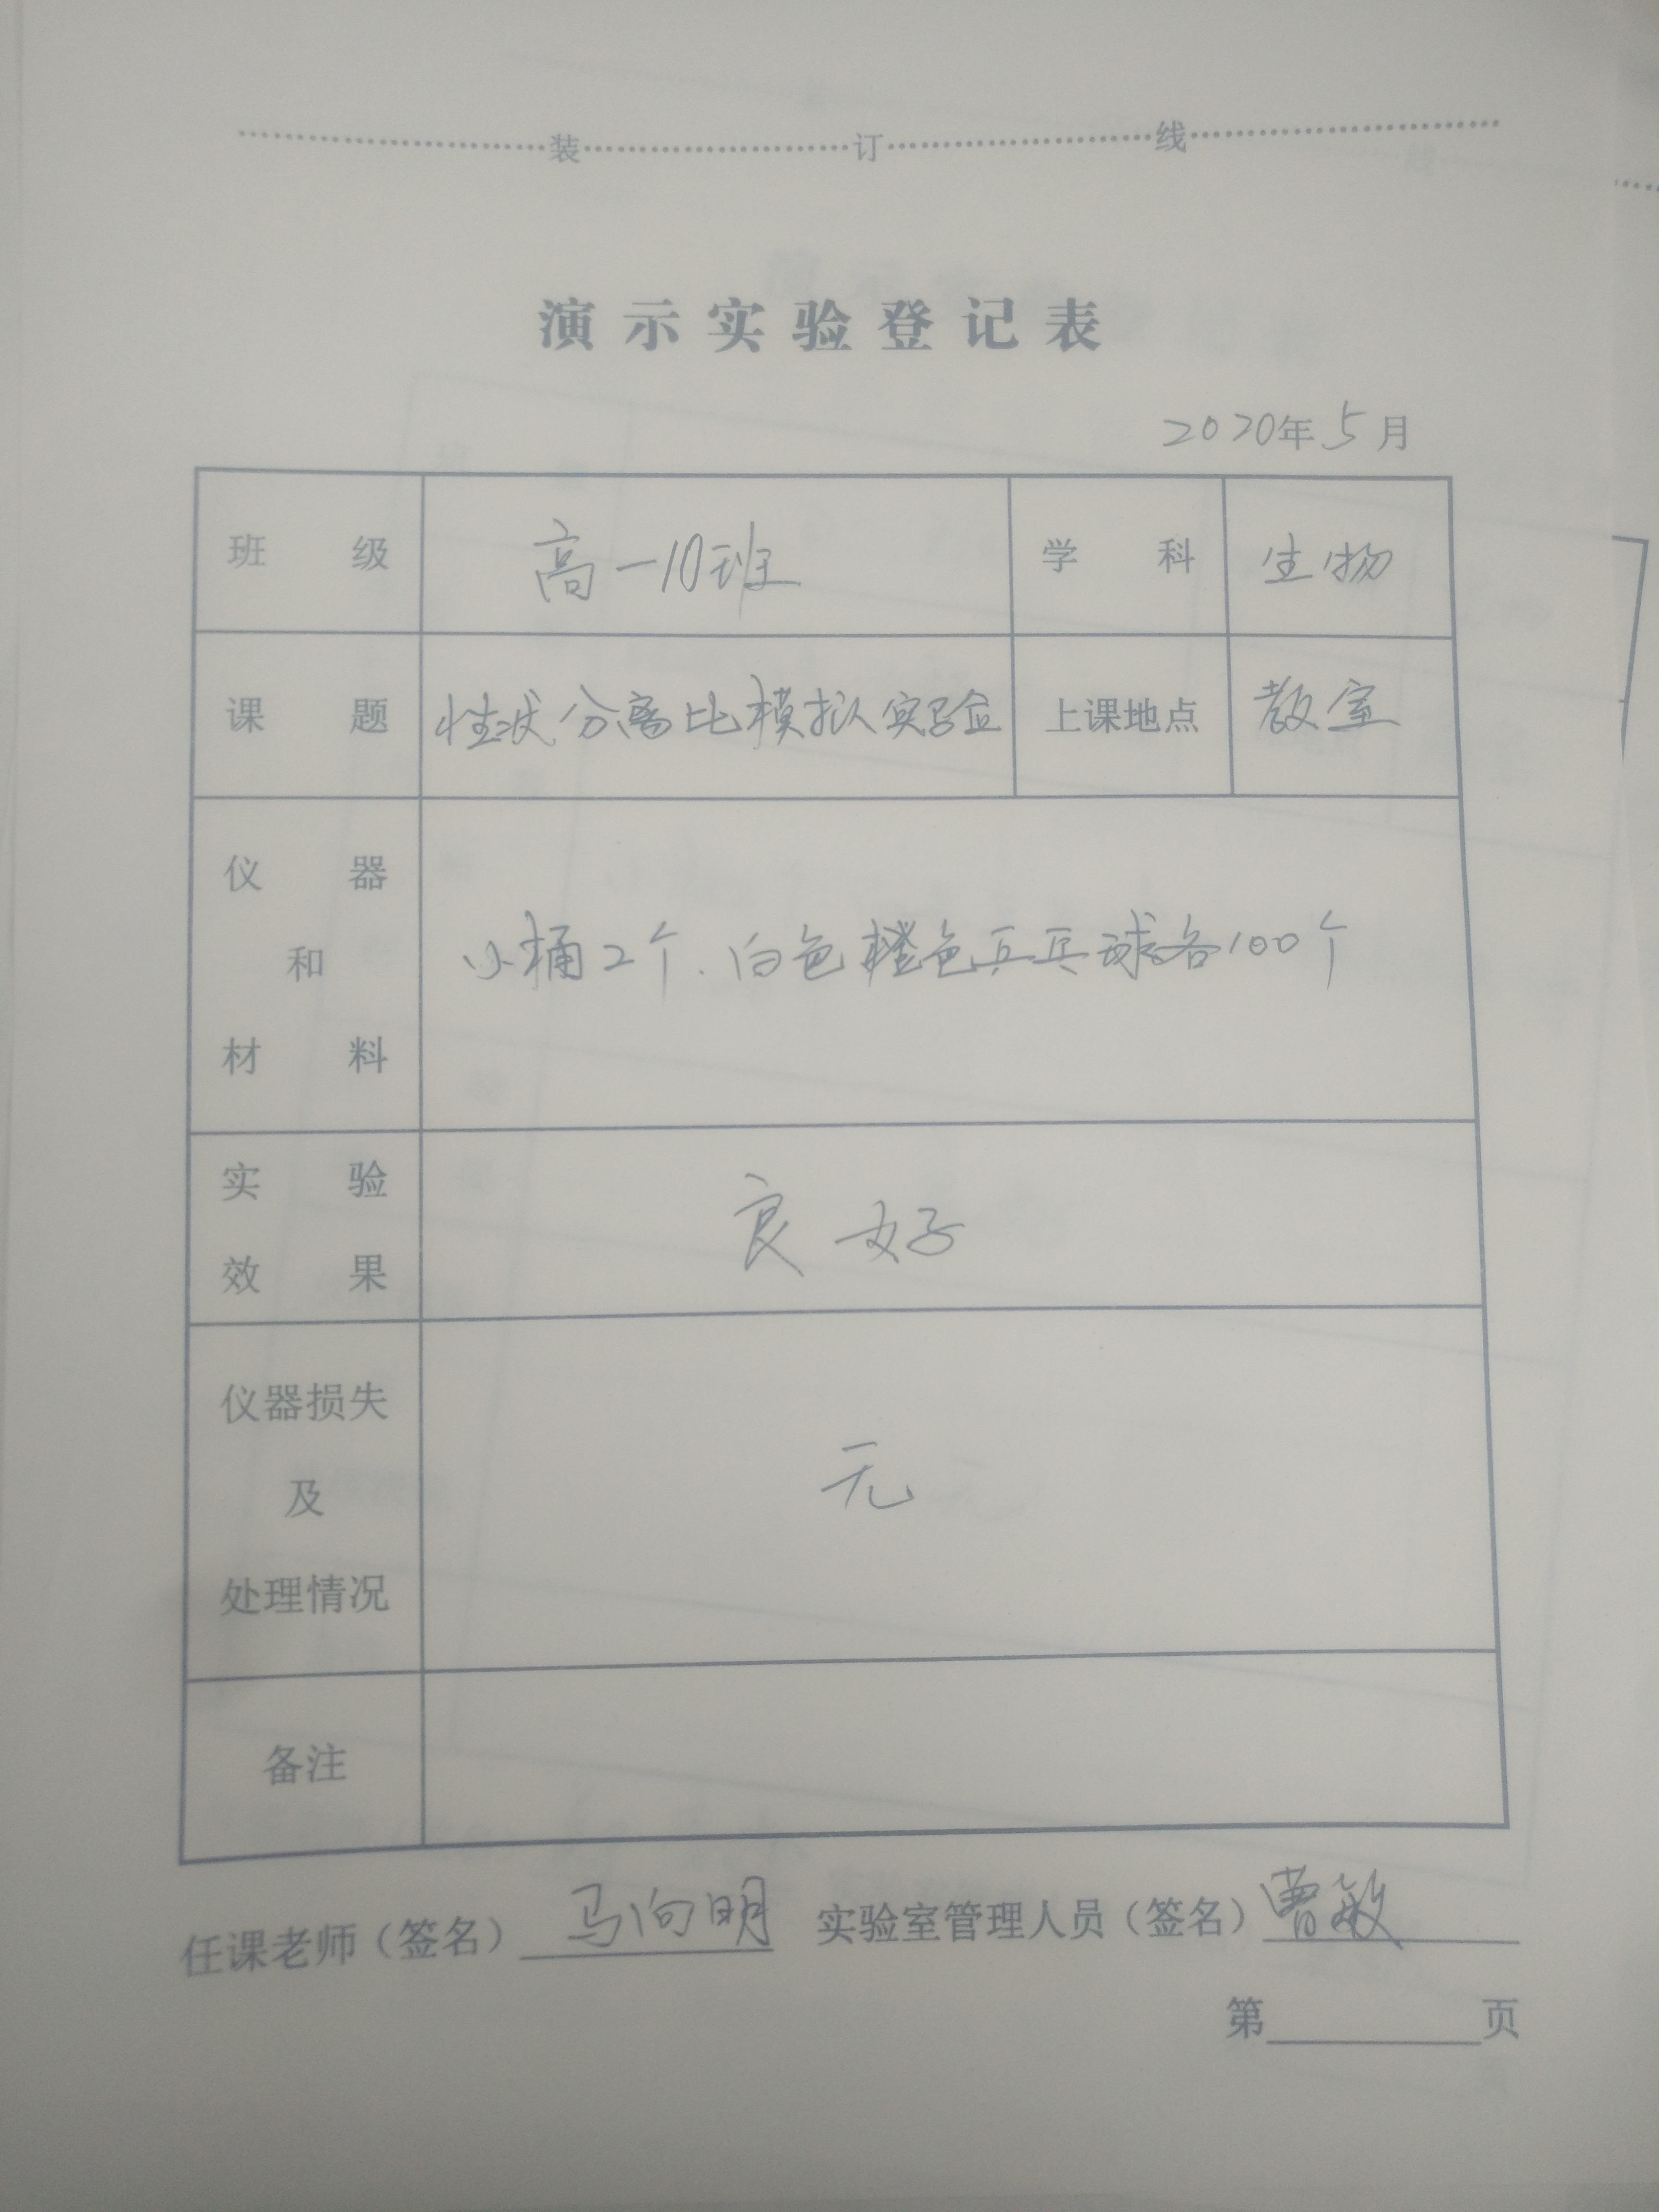 装 订 线
演示实验登记表
2020年5月
班级 高一10班 学科 生物
课题 性状分离比模拟实验 上课地点 教室
仪器
和
材料
小桶2个、白色橙色乒乓球各100个
实验
效果
良好
仪器损失
及
处理情况
无
备注
任课老师(签名) 马向明 实验室管理人员(签名) 曹敏
第 页